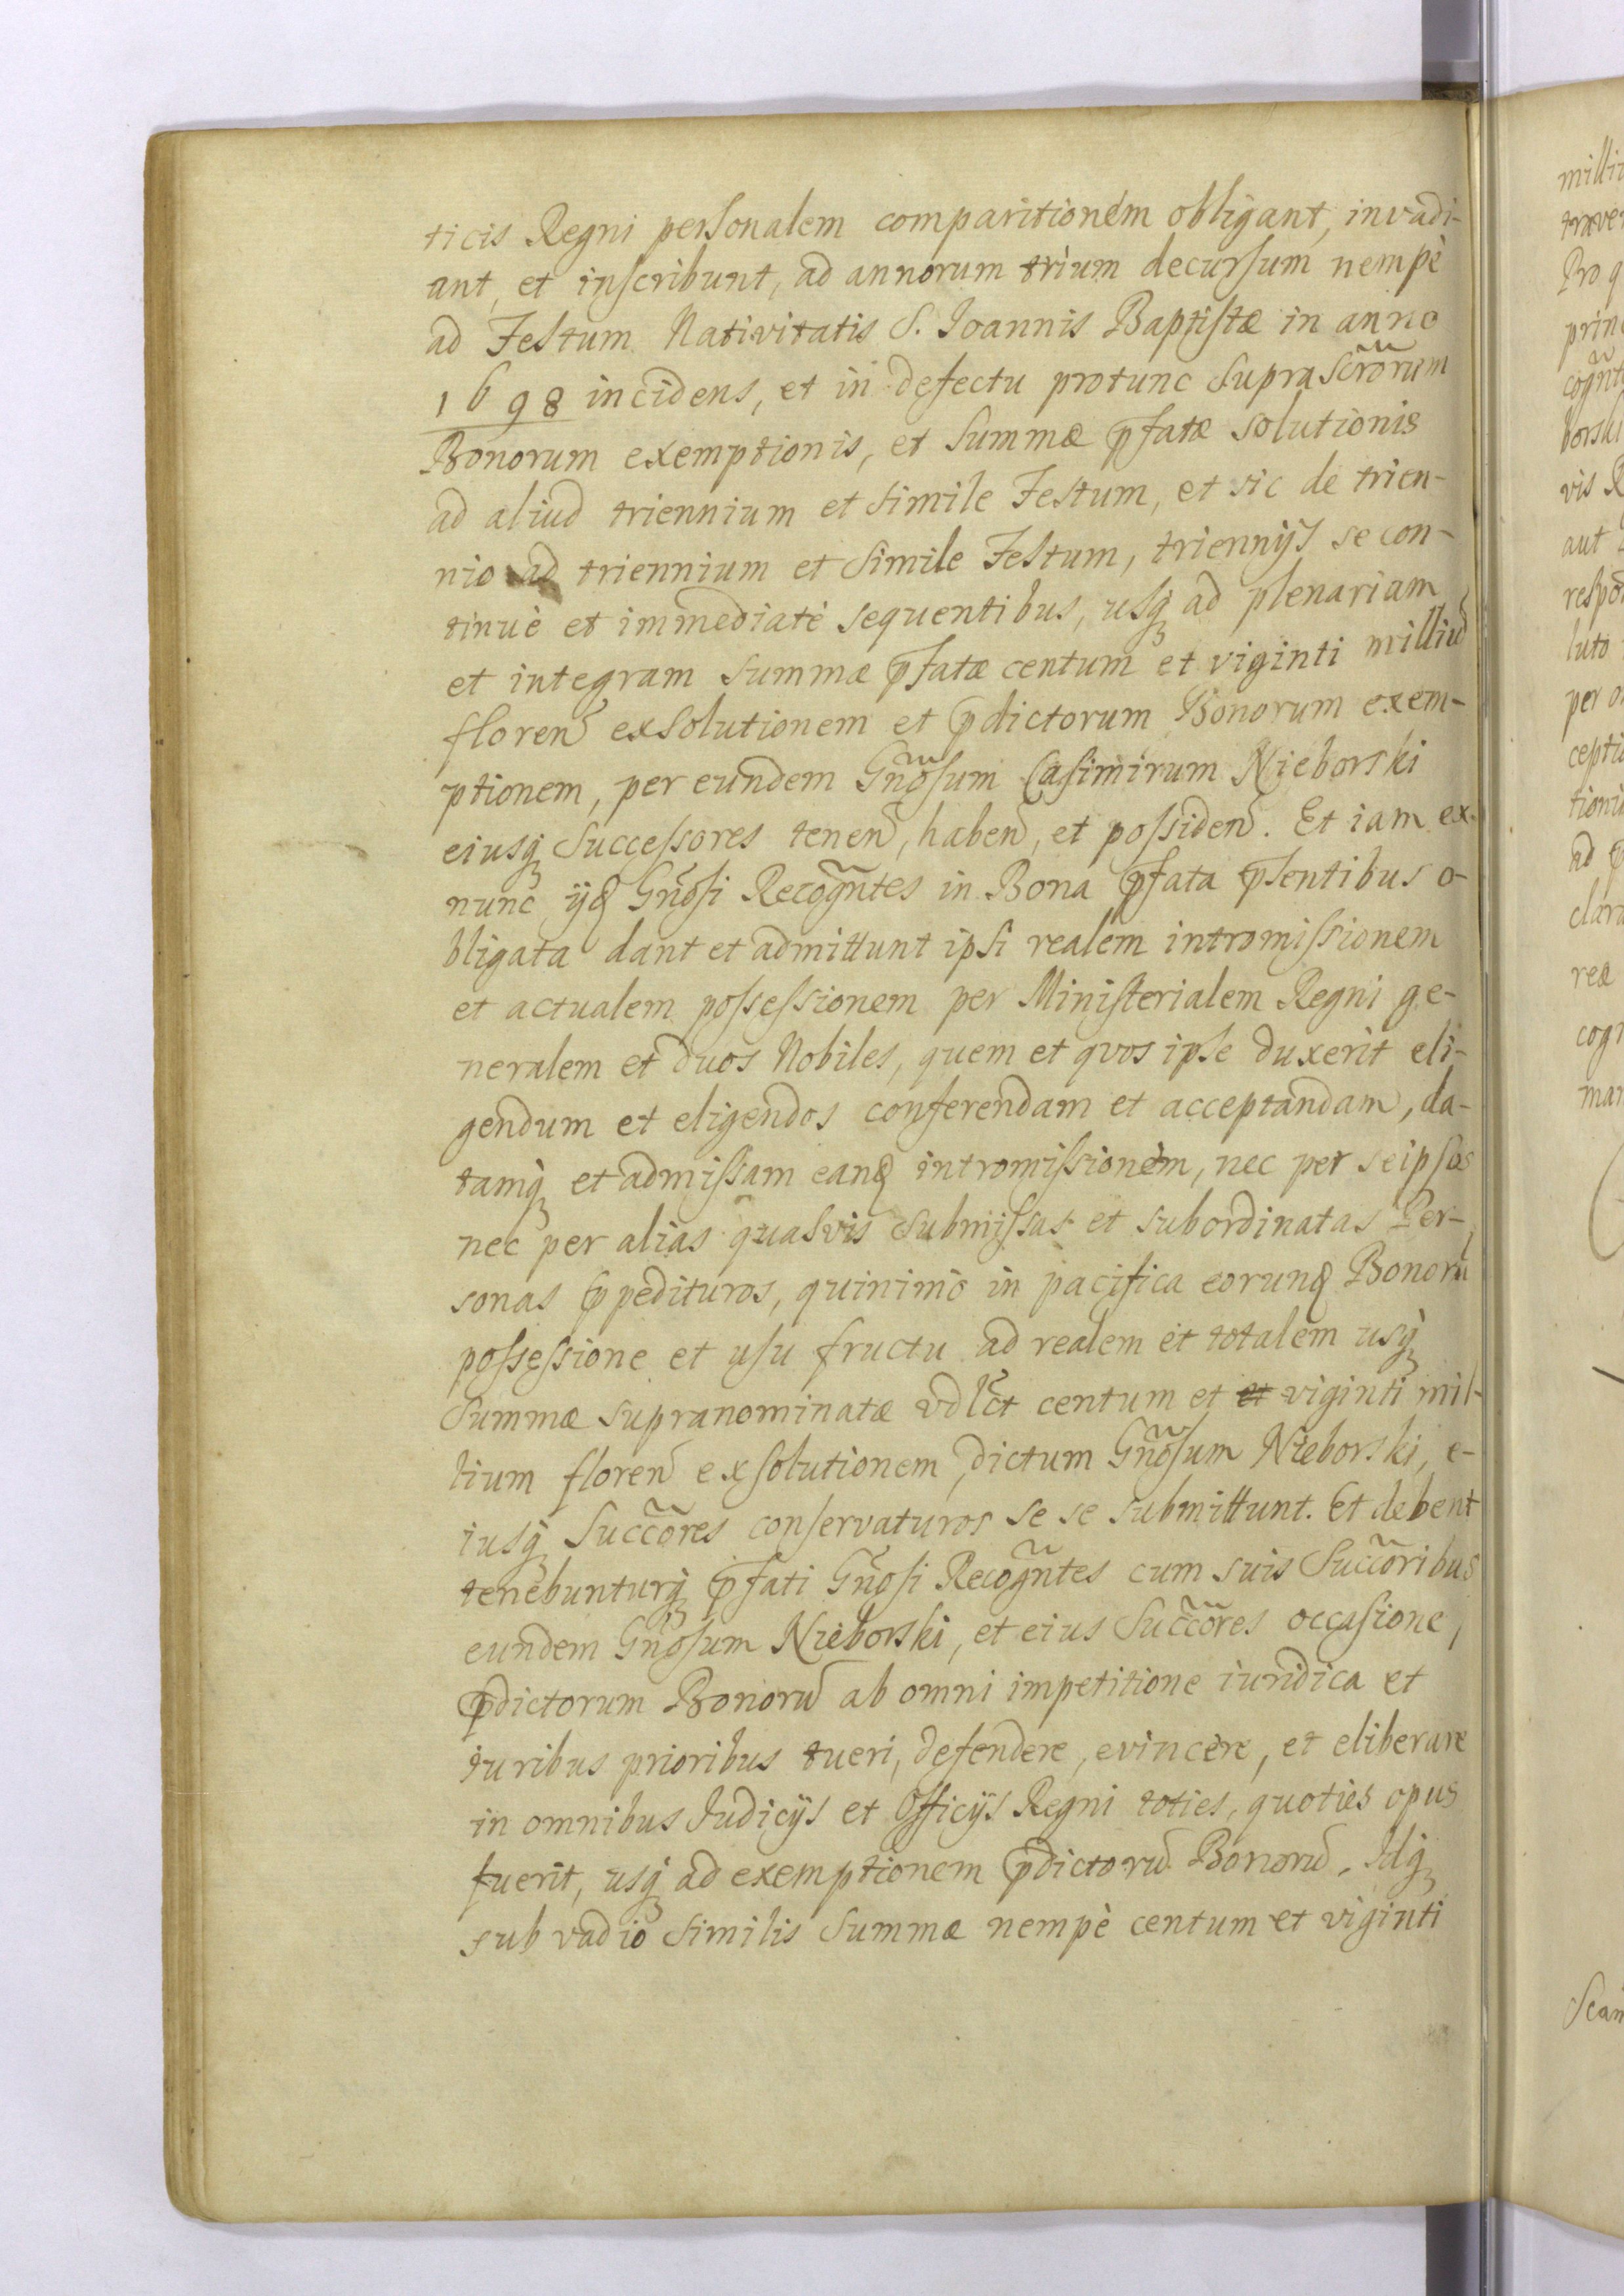 ticis Regni personalem comparitionem obligant, invadi-
ant, et inscribunt, ad annorum trium decursum nempè
ad Festum Nativitatis S. Ioannis Baptistæ in anno
1698 incidens, et in defectu protunc suprascr̃orum
Bonorum exemptionis, et Summæ p̃fatæ solutionis
ad aliud triennium et simile Festum, et sic de trien-
nio ad triennium et simile Festum, triennijs se con-
tinuè et immediatè sequentibus, usq́ ad plenariam
et integram summæ p̃fatæ centum et viginti milliũ
floreñ exsolutionem et p̃dictorum Bonorum exem-
ptionem, per eundem Gñosum Casimirum Nieborski
eiusq́ Successores teneñ, habeñ, et possideñ. Et iam ex
nunc ijd Gñosi Recogñtes in Bona p̃fata p̃sentibus o-
bligata dant et admittunt ipsi realem intromissionem
et actualem possessionem per Ministerialem Regni ge-
neralem et duos Nobiles, quem et quos ipse duxerit eli-
gendum et eligendos conferendam et acceptandam, da-
tamq́ et admissam eand intromissionem, nec per seipsos
nec per alias quasvis submissas et subordinatas Per-
sonas p̃pedituros, quinimò in pacifica eorund Bonorũ
possessione et usu fructu ad realem et totalem usq́
Summæ supranominatæ vdlc̃t centum et et viginti mil-
lium floreñ exsolutionem, dictum Gñosum Nieborski, e-
iusq́ Succc̃ores conservaturos se se submittunt. Et debent
tenebunturq́ p̃fati Gñosi Recogñtes cum suis Succõribus
eundem Gñosum Nieborski, et eius Succc̃ores occasione,
p̃dictorum Bonorũ ab omni impetitione iuridica et
iuribus prioribus tueri, defendere, evincere, et eliberare
in omnibus Iudicijs et Officijs Regni toties, quoties opus
fuerit, usq́ ad exemptionem p̃dictorũ Bonorũ. Idq́
sub vadio similis Summæ nempè centum et viginti